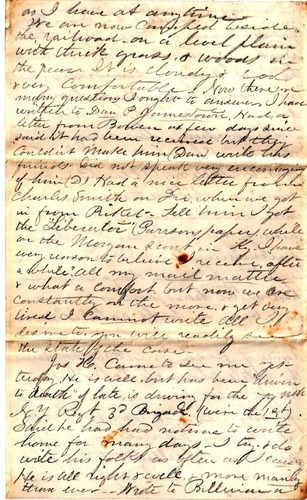 as I have at anytime
We are now Camped beside
the railroad on a level plain
with thick grass, & woods in
the rear It is cloudy & cool
& very comfortable. Now there are
many questions I ought to answer. I have
written to Dan P. Jamestown. Had a
letter from Bowen a few days since
said it had been received but they
couldn't make him (Dan) write his
friends. Did not speak very encouragingly
of him (D) Had a nice letter from
Charles Smith on when we got
in from Tell him I got
the Liberator (Parsons paper) while
on the Morgan scout in Ky. I have
every reason to believe I receive after
a while all my mail matter
& what a comfort but now we are
constantly on the move & get very
tired I cannot write all I
desire to you will readily see
the state of the case.
Jas H. Came to see me yes
terday. He is well, but has been driven
to death of late in driving for the 79
N.Y. Regt 3d Brigade (we're the 1st)
Said he had had no time to write
home for many days - I try & do
write his folks as often as I can
He is all right & well & more manly
than ever Note